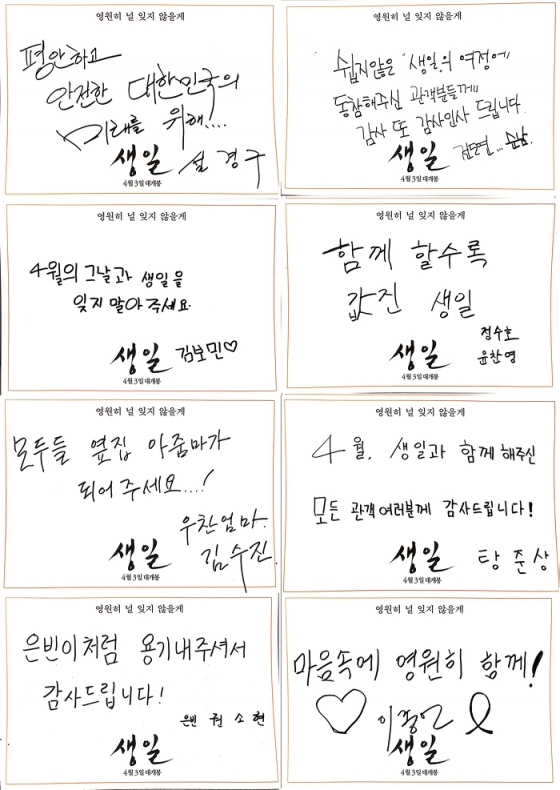 영원히 널 잊지 않을게
평안하고
안전한 대한민국의
미래를 위해....
생일 설경구
4월 3일 대개봉
영원히 널 잊지 않을게
쉽지않은 "생일"의 여정에
동참해주신 관객분들께
감사 또 감사인사 드립니다
생일 전도연...순남
4월 3일 대개봉
영원히 널 잊지 않을게
4월의 그날과 생일을
잊지 말아 주세요.
생일 김보민♡
4월 3일 대개봉
영원히 널 잊지 않을게
함께 할수록
값진 생일
정수호
생일 윤찬영
4월 3일 대개봉
영원히 널 잊지 않을게
모두들 옆집 아줌마가
되어 주세요...!
우찬엄마.
생일 김수진
4월 3일 대개봉
영원히 널 잊지 않을게
4월, 생일과 함께 해주신
모든 관객여러분께 감사드립니다!
생일 탕준상
4월 3일 대개봉
영원히 널 잊지 않을게
은빈이처럼 용기내주셔서
감사드립니다!
은빈 권소현
생일
4월 3일 대개봉
영원히 널 잊지 않을게
마음속에 영원히 함께!
♡ 이종언
생일
4월 3일 대개봉